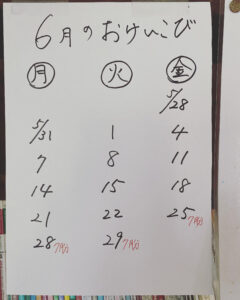 6月のおけいこび
月 火 金
5/28
5/31 1 4
7 8 11
14 15 18
21 22 25 7月分
28 7月分 29 7月分